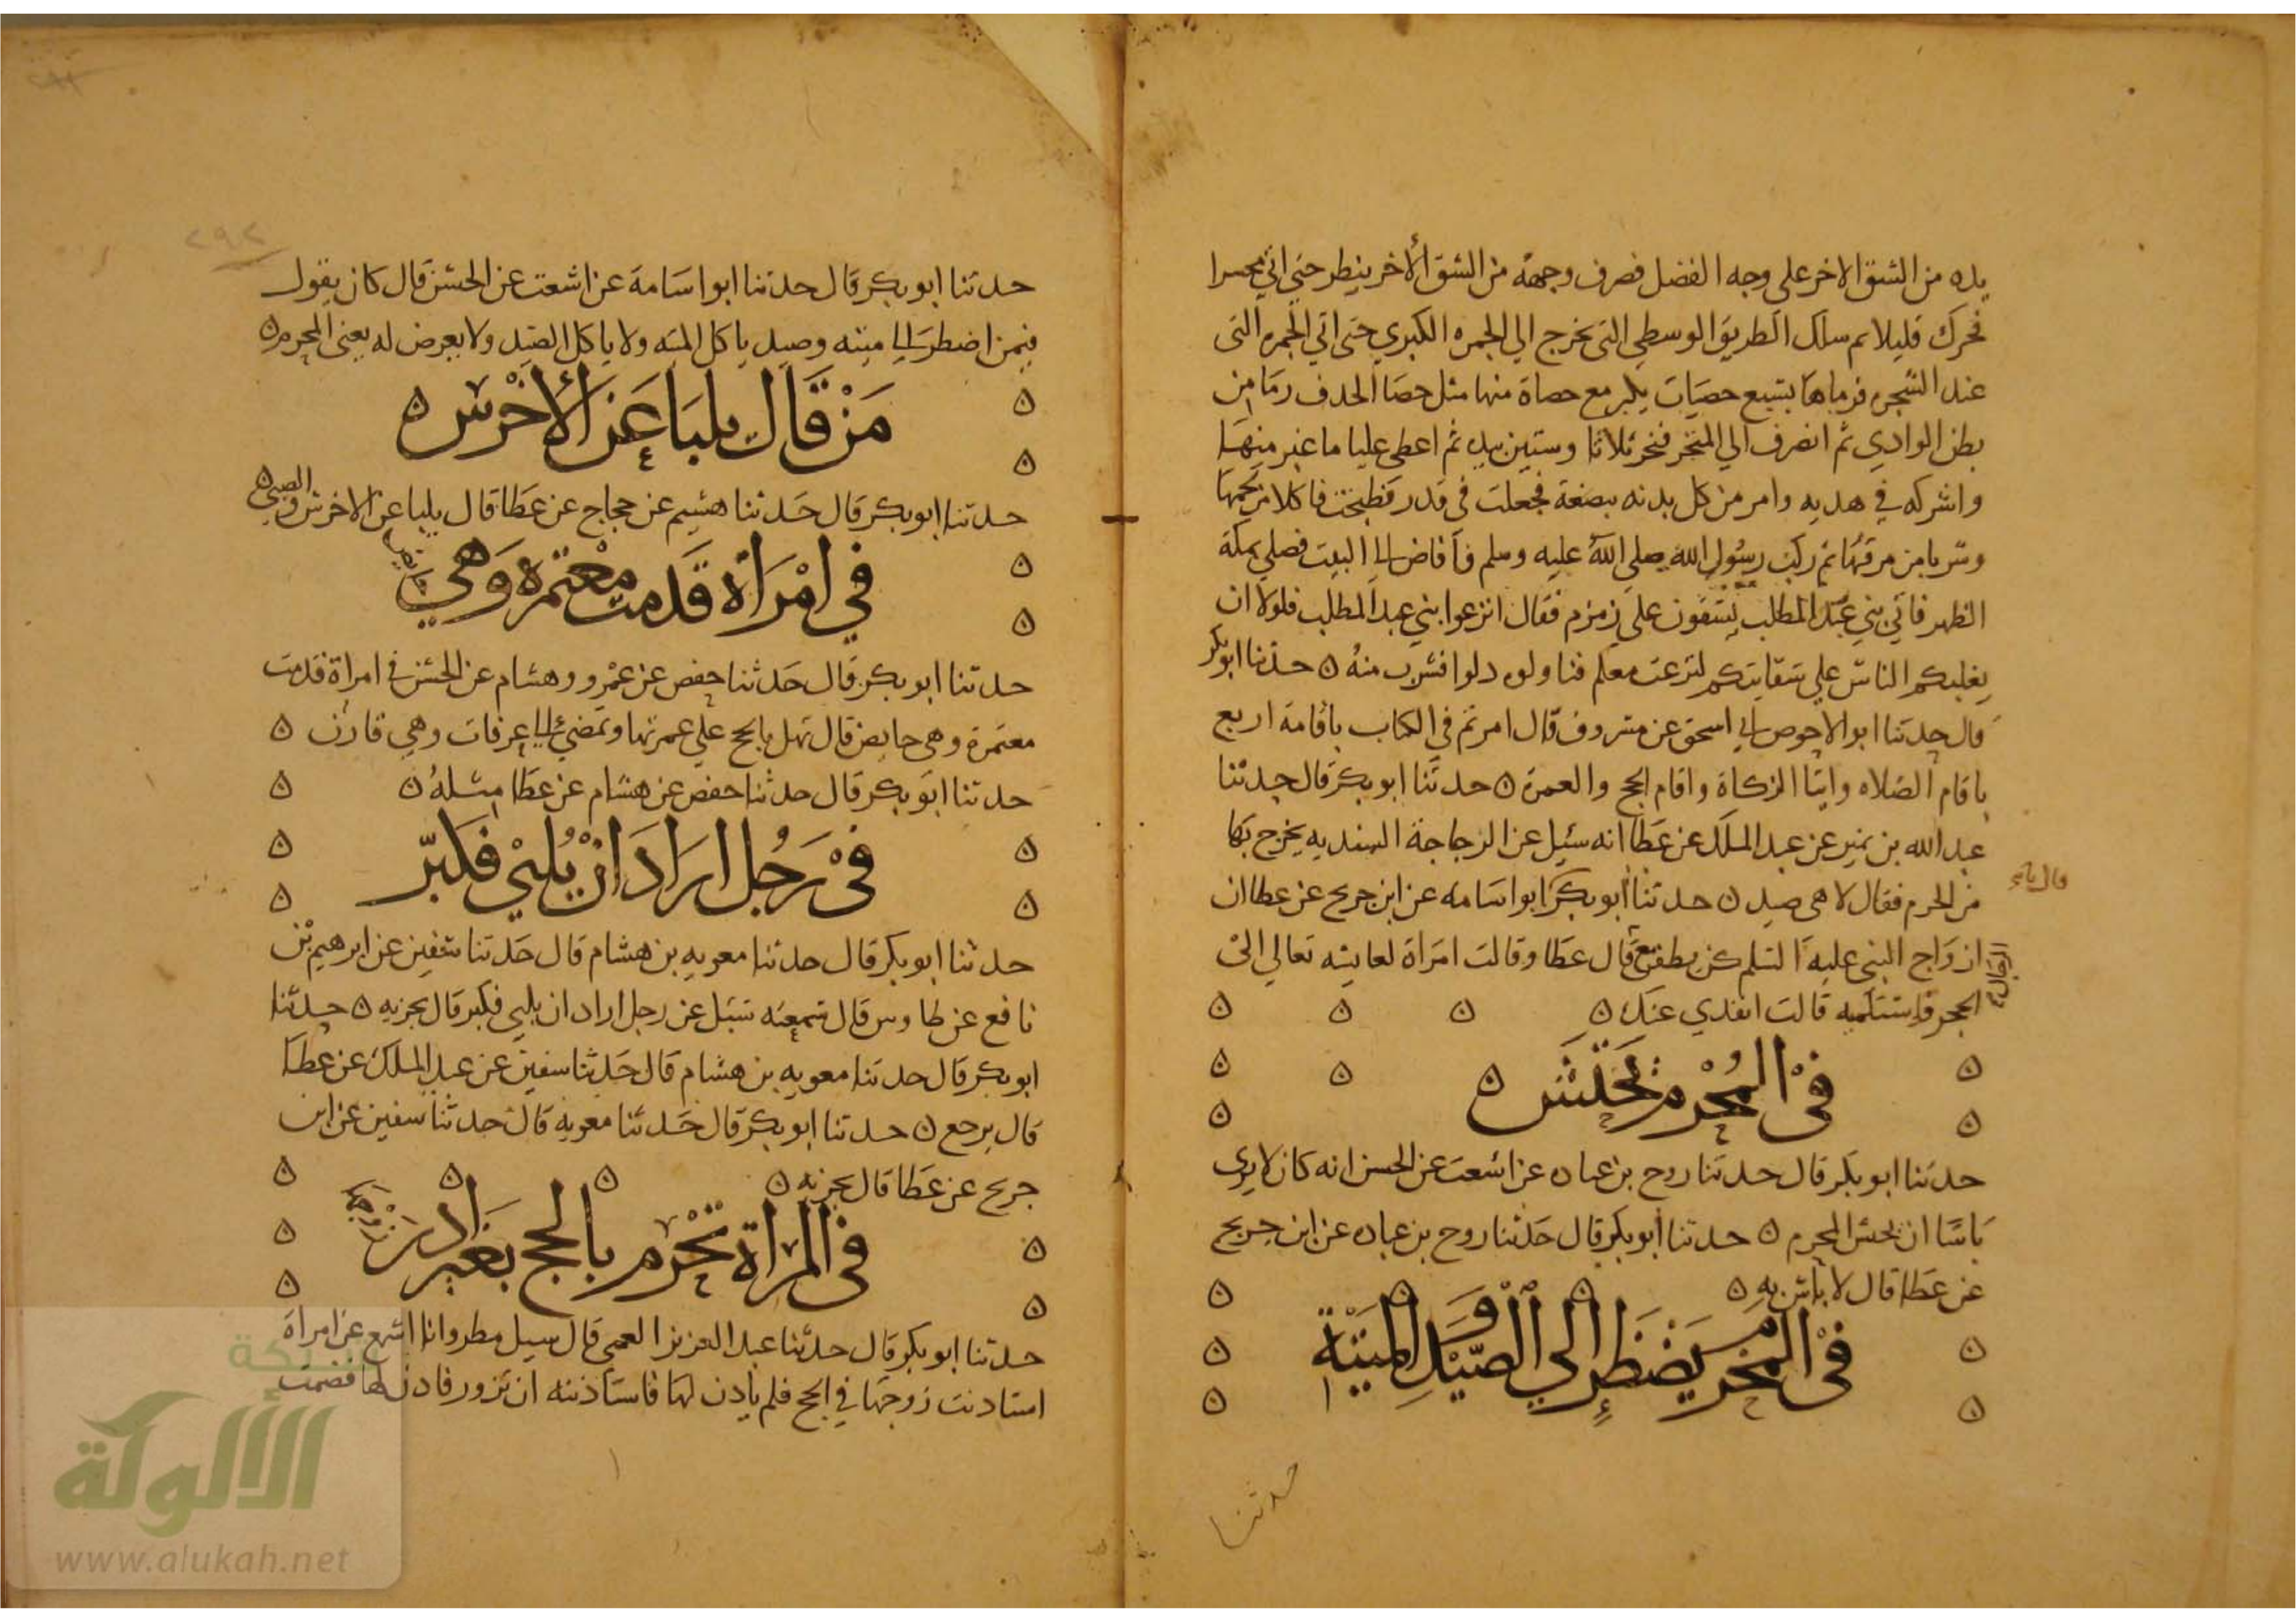 يده من الشق الاخر على وجه الفضل فصرف وجهه من الشق الأخر ينظر حتى اتى محسرا
فحرك قليلا ثم سلك الطريق الوسطى التى تخرج الي الجمره الكبري حتى اتى الجمره التى
عند الشجره فرماها بسبع حصيات يكبر مع حصاة منها مثل حصا الخدف رما من
بطن الوادي ثم انصرف الي المنحر فنحر ثلاثا وستين بيده ثم اعطى عليا ما غبر منها
واشركه في هديه وامر من كل بدنه ببضعة فجعلت في قدر فطبخت فاكلا من لحمها
وشربا من مرقها ثم ركب رسول الله صلى الله عليه وسلم فأفاض الى البيت فصلى بمكة
الظهر فاتي بني عبد المطلب يسقون على زمزم فقال انزعوا بني عبد المطلب فلولا ان
يغلبكم الناس علي سقايتكم لنزعت معكم فناولوه دلوا فشرب منهُ ه حدثنا ابو بكر
قال حدثنا ابو الاحوص اسحق عن مسروف قال امرتم في الكتاب باقامة اربع
باقام الصلاه وايتا الزكاة واقام الحج والعمرة ه حدثنا ابو بكر قال حدثنا
عبد الله بن نمير عن عبد الملك عن عطا انه سئيل عن الزجاجة السنديه يخرج بها
من الحرم فقال لا هي صيد ه حدثنا أبو بكر ابو اسامه عن ابن جريج عن عطا ان
قال نا
ازواج النبى عليه السلم كن يطفن قال عطا وقالت امراة لعايشه تعالي الى
الحجر فاستلميه قالت انفذي عنك ه
في المُحْرم يَحْتَش ه
حدثنا ابو بكر قال حدثنا روح بن عباده عن اشعث عن الحسن انه كان لا يرى
باسًا ان يحتش المحرم ه حدثنا أبو بكر قال حدثنا روح بن عباده عن ابن جريج
عن عطا قال لا باس به ه
في المحرم يضطر الي الصيد والميتة
حدثنا
٢٩٢
حدثنا ابو بكر قال حدثنا ابو اسامة عن اشعث عن الحسن قال كان يقول
فيمن اضطر الى ميته وصيد ياكل الميته ولا ياكل الصيد ولا يعرض له يعنى المحرم ه
مَنْ قَال يلبا عَن الأخْرس ه
حدثنا ابو بكر قال حدثنا هشيم عن حجاج عن عطا قال يلبا عن الاخرس والصبى ه
في امْرأة قَدمت معْتمرة وَهي حايض
حدثنا ابو بكر قال حدثنا حفص عن عمْرو وهشام عن الحسن في امراة قدمت
معتمرة وهي حايض قال تهل بالحج علي عمرتها وتمضي الى عرفات وهي قارن ه
حدثنا ابو بكر قال حدثنا حفص عن هشام عن عطا مثلهُ ه
في رَجُل ارَادَ انْ يُلبيْ فكبّر
حدثنا ابو بكر قال حدثنا معويه بن هشام قال حدثنا سفين عن ابرهيم بن
نافع عن طاوس قال سمعته سئل عن رجل اراد ان يلبى فكبر قال يجزيه ه حدثنا
ابو بكر قال حدثنا معويه بن هشام قال حدثنا سفين عن عبد الملك عن عطا
قال يرجع ه حدثنا ابو بكر قال حدثنا معويه قال حدثنا سفين عن ابن
جريج عن عطا قال يجزيه ه
في المراة تحْرم بالحج بغير اذن
حدثنا ابو بكر قال حدثنا عبد العزيز العمي قال سيل مطر وانا اسمع عن امراة
استاذنت زوجها في الحج فلم ياذن لها فاستاذنته ان تزور فاذن لها فضمت
شبكة
الألوكة
www.alukah.net